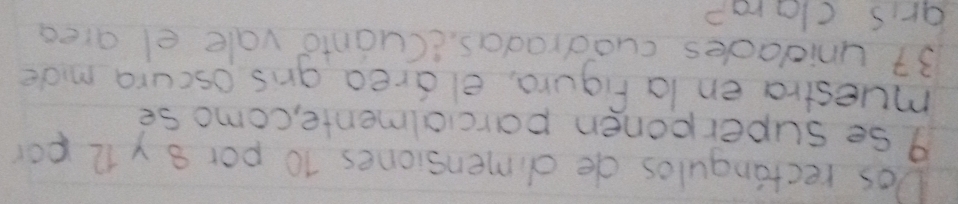 Dos rectángulos de dimensiones 10 por 8 y 12 por
9 se superponen parcialmente, como se
muestra en la figura, el área gris oscura mide
37 unidades cuadradas. ¿Cuánto vale el area
gris clara?